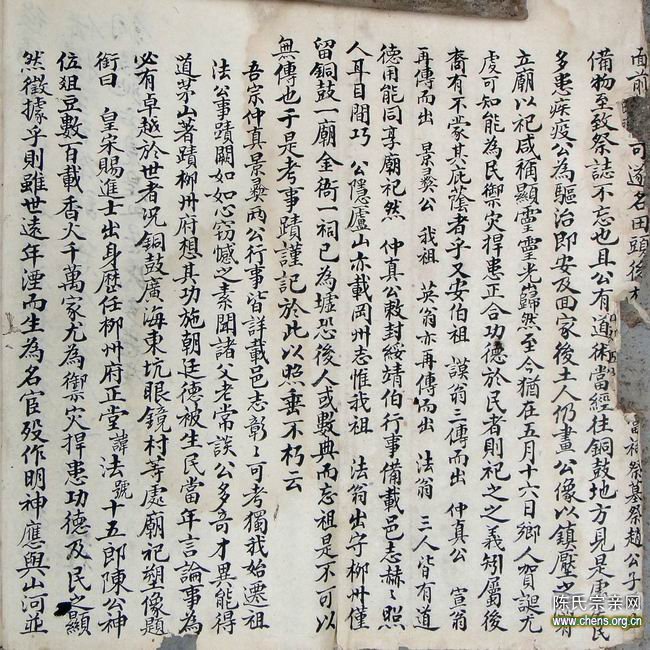 面前 可遂名田頭後 當祠祭墓祭趙公子
備物至致祭誌不忘也且公有道術當經往銅鼓地方見是 民
多患疾疫公為驅治即安及回家後土人仍畫公像以鎮壓之
立廟以祀咸稱顯靈靈光巋然至今猶在五月十六日鄉人賀誕尤
虔可知能為民禦灾捍患正合功德於民者則祀之之義矧屬後
裔有不蒙其庇蔭者乎又安伯祖 謨翁三傳而出 仲真公 宣翁
再傳而出 景彝公 我祖 英翁亦再傳而出 法翁 三人皆有道
德用能同享廟祀然 仲真公敕封綏靖伯行事備載邑志赫〻照
人耳目間巧 公隱廬山亦載岡州志惟我祖 法翁出守柳州僅
留銅鼓一廟金衙一祠已為墟恐後人或數典而忘祖是不可以
無傳也于是考事蹟謹記於此以照垂不朽云
吾宗仲真景彝兩公行事皆詳載邑志彰〻可考獨我始遷祖
法公事蹟闕如如心竊憾之素聞諸父老常談公多奇才異能得
道茅山著蹟柳州府想其功施朝廷德被生民當年言論事為
必有卓越於世者况銅鼓廣海東坑眼鏡村等處廟祀塑像題
銜曰 皇宋賜進士出身歷任柳州府正堂諱法號十五郎陳公神
位俎豆數百載香火千萬家尤為禦灾捍患功德及民之顯
然徵據乎則雖世遠年湮而生為名宦殁作明神應與山河並
陈氏宗亲网
www.chens.org.cn